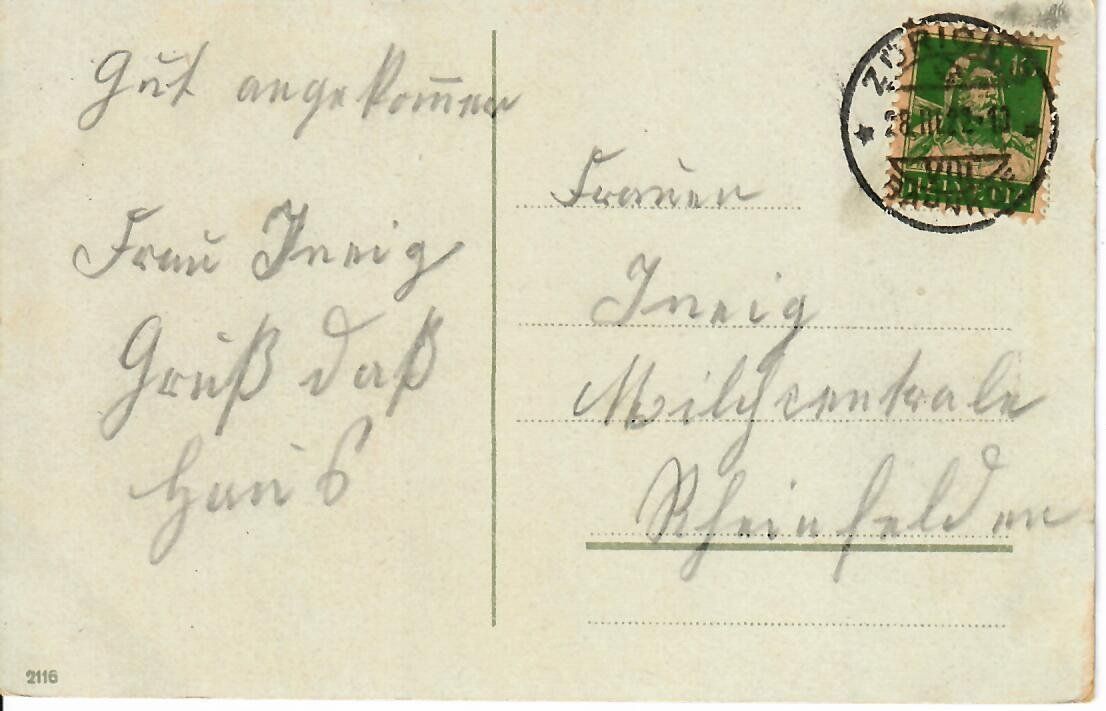 Gut angekom̅en
Frau Ineig
Gruß daß
Hans
Frauen
Ineig
Milchzentrale
Rheinfelden
ZÜRICH
28.III.
VIII
HELVETIA
2116